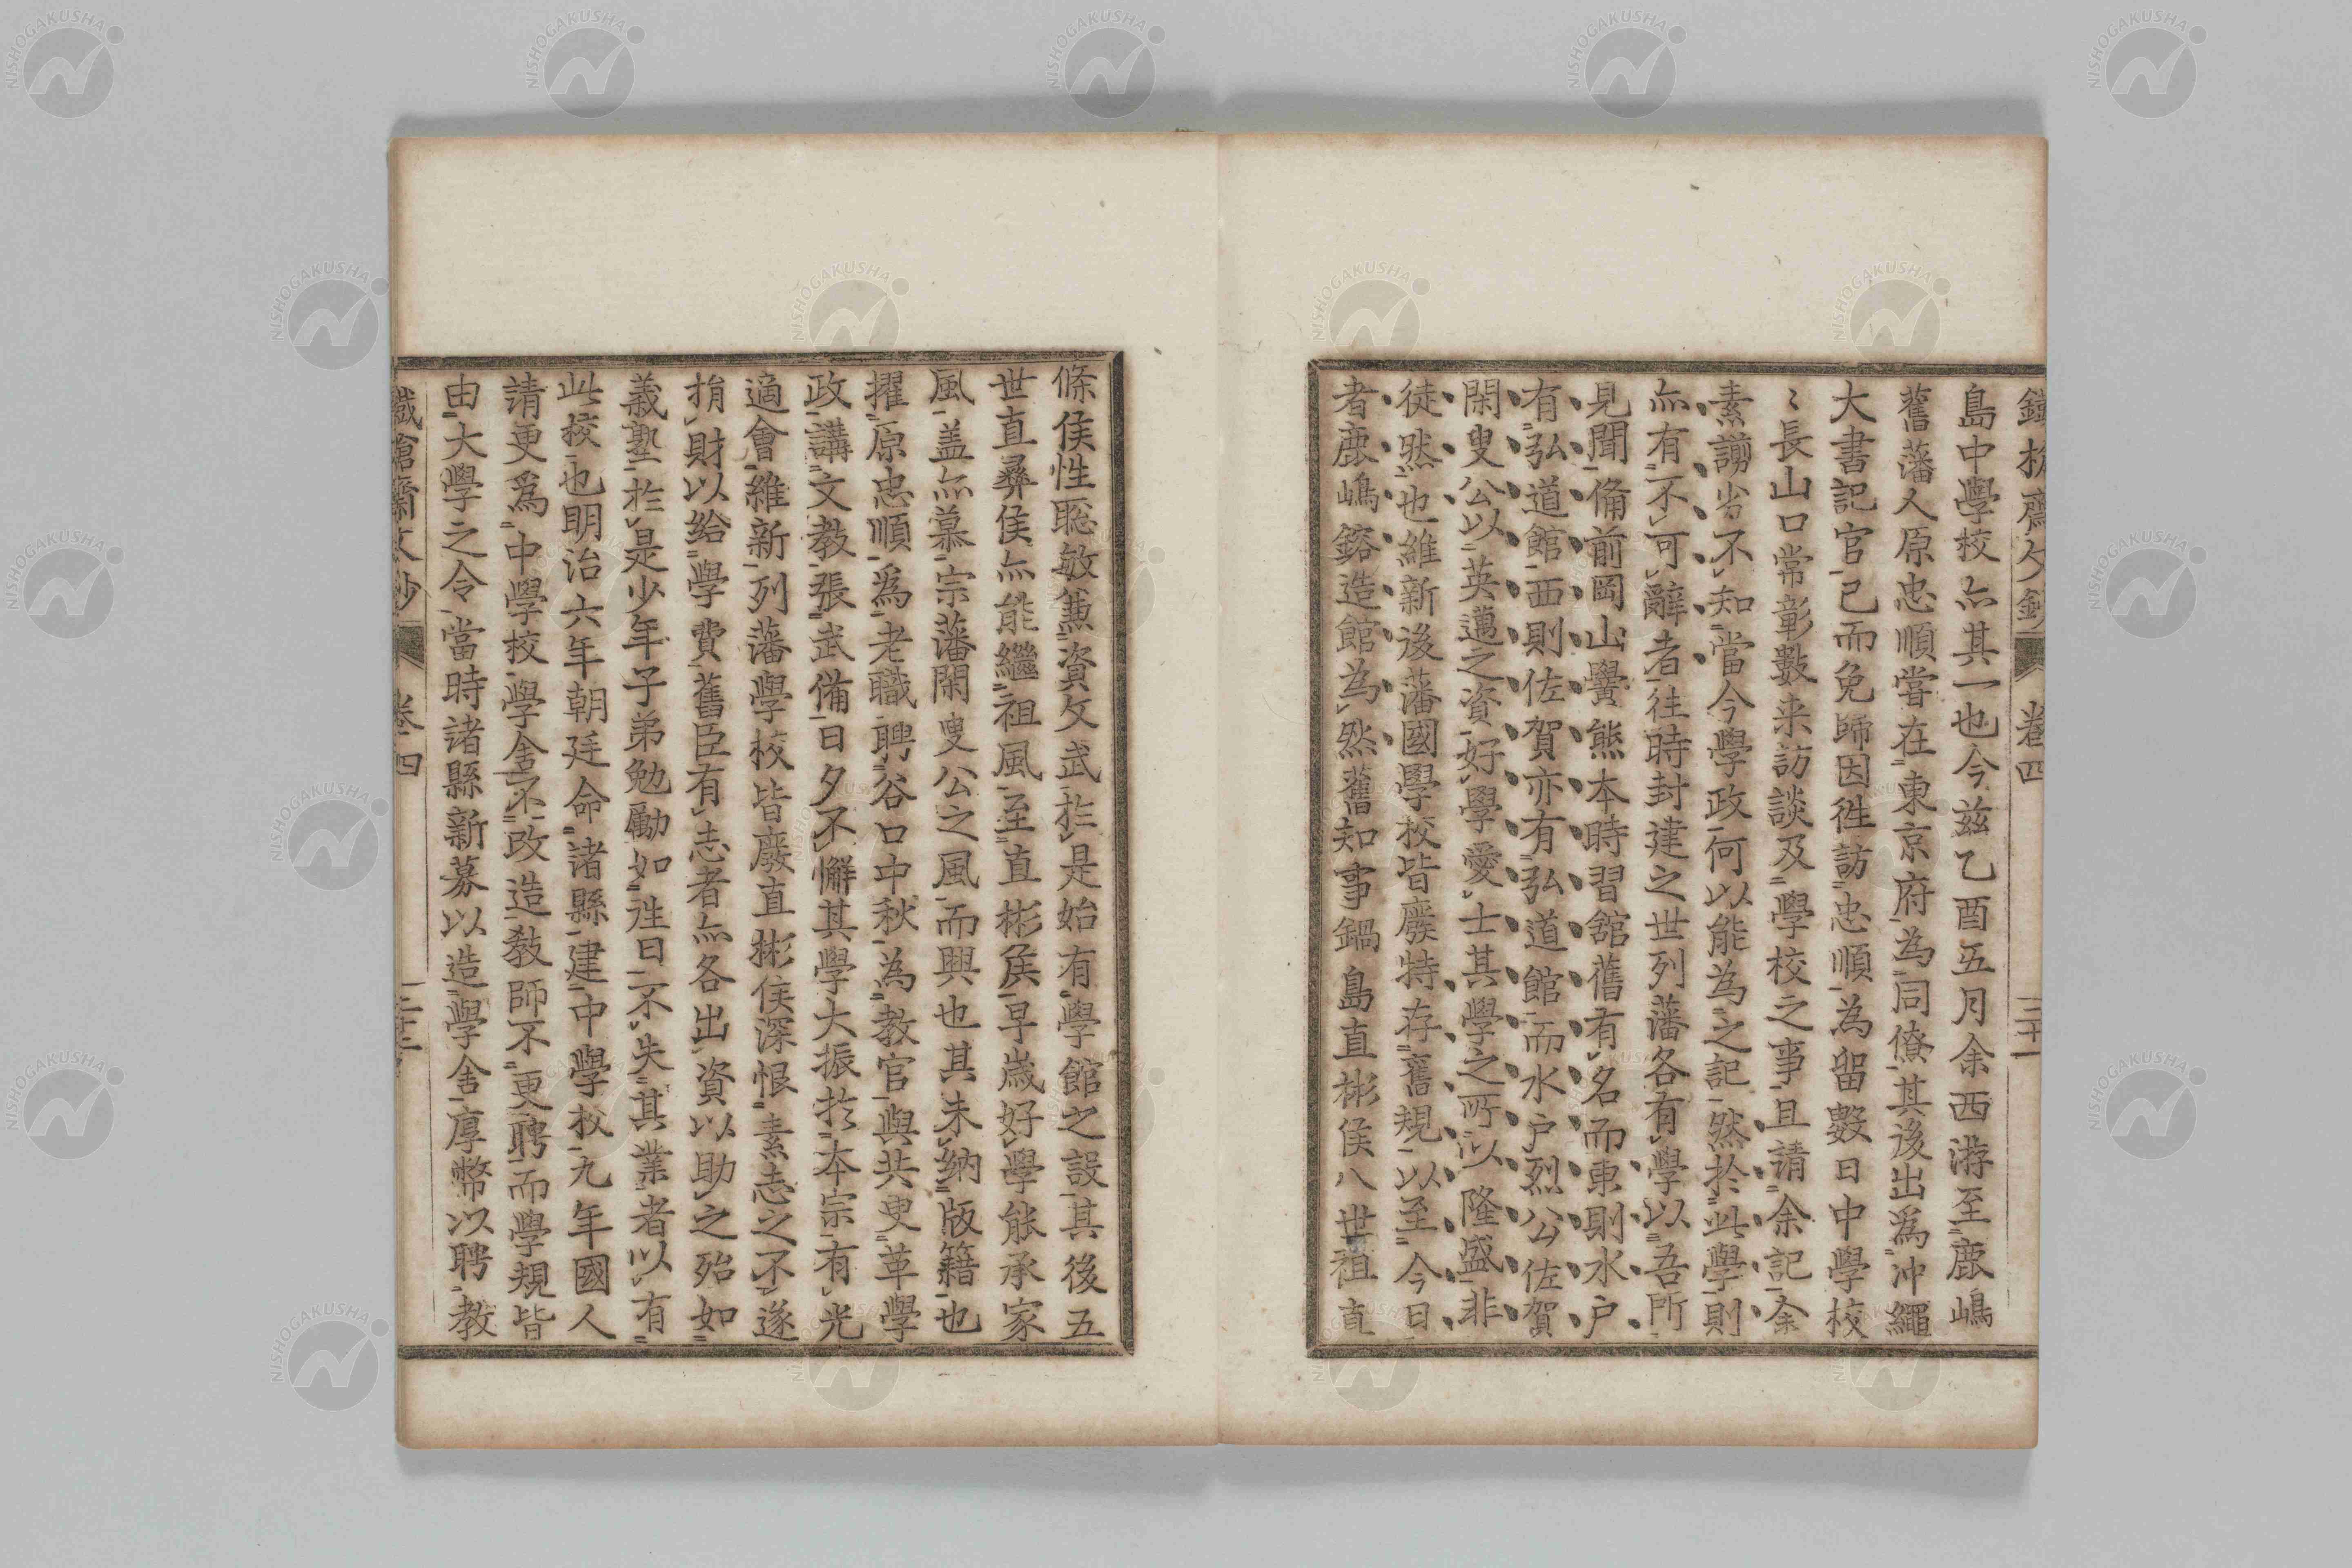 鐵槍齋文鈔 卷四 三十一
島中學校亦其一也今茲乙酉五月余西游至鹿嶋
舊藩人原忠順嘗在東京府為同僚其後出為冲繩
大書記官已而免歸因徃訪忠順為留數日中學校
〻長山口常彰數来訪談及學校之事且請余記余
素謭劣不知當今學政何以能為之記然於此學則
亦有不可辭者徃時封建之世列藩各有學以吾所
見聞備前岡山黌熊本時習舘舊有名而東則水戶
有弘道館西則佐賀亦有弘道館而水戶烈公佐賀
閑叟公以英邁之資好學愛士其學之所以隆盛非
徒然也維新後藩國學校皆廢特存舊規以至今日
者鹿嶋鎔造館為然舊知事鍋島直彬侯八世祖直
條侯性聡敏兼資文武於是始有學館之設其後五
世直彝侯亦能繼祖風至直彬侯早歲好學能承家
風盖亦慕宗藩閑叟公之風而興也其未納版籍也
擢原忠順為老職聘谷口中秋為教官與共叟革學
政講文教張武備日夕不懈其學大振於本宗有光
適會維新列藩學校皆廢直彬侯深恨素志之不遂
捐財以給學費舊臣有志者亦各出資以助之殆如
義塾於是少年子弟勉勵如徃日不失其業者以有
此校也明治六年朝廷命諸縣建中學校九年國人
請更為中學校學舍不改造教師不更聘而學規皆
由大學之令當時諸縣新募以造學舍厚幣以聘教
鐵槍齋文鈔 卷四